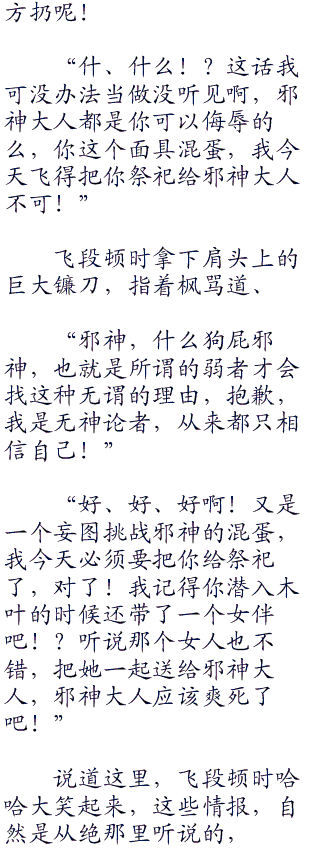 方扔呢！
“什、什么！？这话我
可没办法当做没听见啊，邪
神大人都是你可以侮辱的
么，你这个面具混蛋，我今
天飞得把你祭祀给邪神大人
不可！”
飞段顿时拿下肩头上的
巨大镰刀，指着枫骂道、
“邪神，什么狗屁邪
神，也就是所谓的弱者才会
找这种无谓的理由，抱歉，
我是无神论者，从来都只相
信自己！”
“好、好、好啊！又是
一个妄图挑战邪神的混蛋，
我今天必须要把你给祭祀
了，对了！我记得你潜入木
叶的时候还带了一个女伴
吧！？听说那个女人也不
错，把她一起送给邪神大
人，邪神大人应该爽死了
吧！”
说道这里，飞段顿时哈
哈大笑起来，这些情报，自
然是从绝那里听说的，